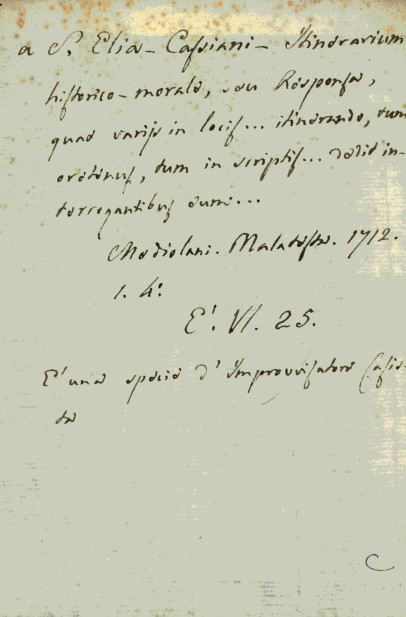 a S. Elia - Cassiani - Itinerarium
historico-morale, seu Responsa,
quae varijs in locis... itinerando, tum
oretenus, tum in scriptis... dedit in-
terrogantibus eum...
Mediolani. Malatesta. 1712.
1. 4.º
E'. VI. 25.
E' una specie d' Improvvisatore Casis-
ta
C